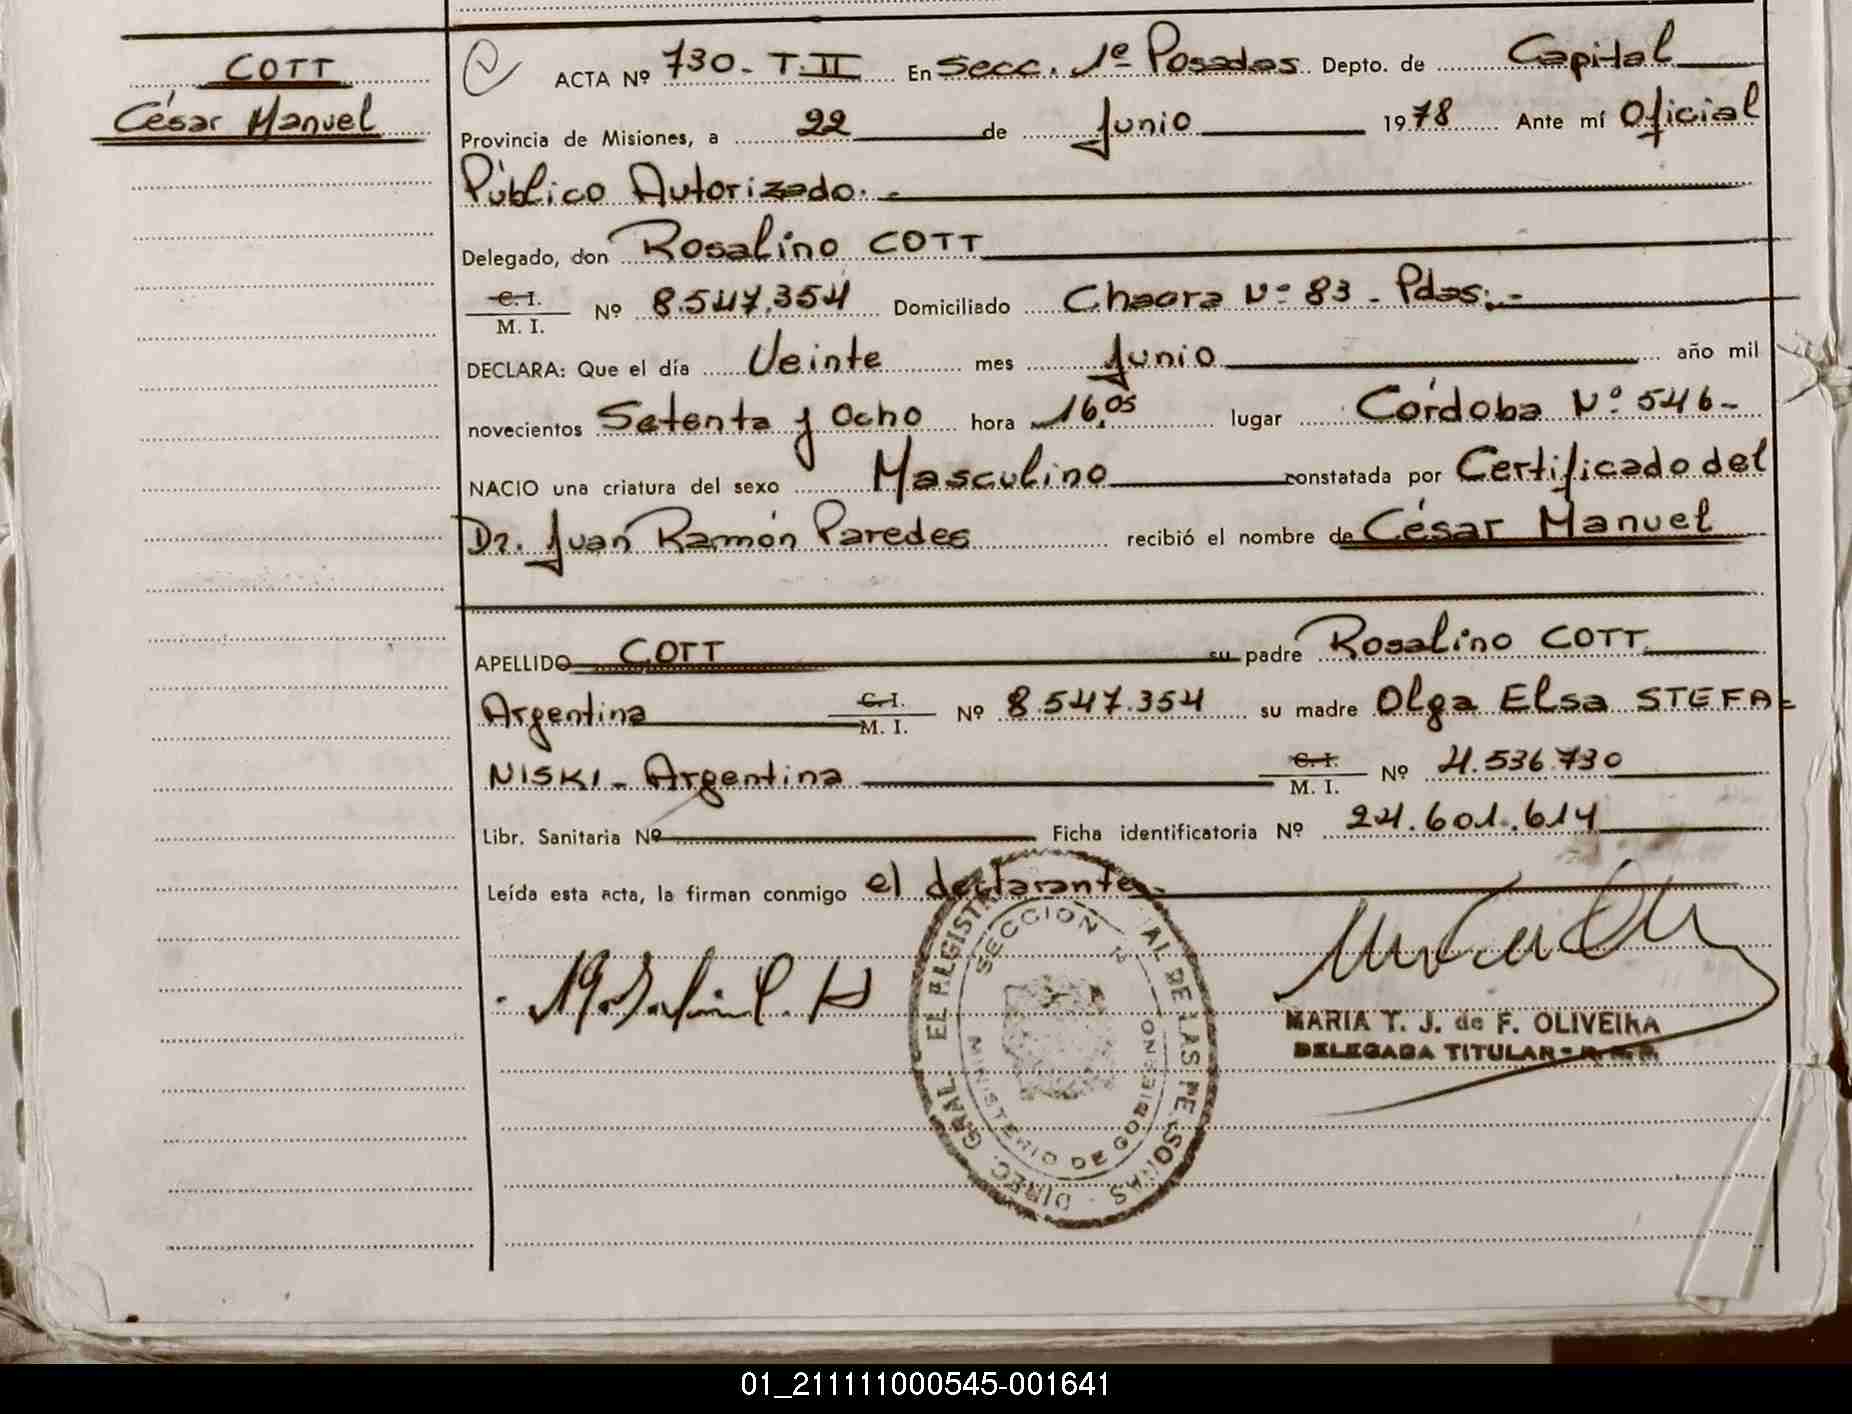 COTT
César Manuel
ACTA Nº 730 - T. II En Secc. 1º Posadas Depto. de Capital
Provincia de Misiones, a 22 de Junio 1978 Ante mí Oficial
Público Autorizado. -
Delegado, don Rosalino COTT
C. I.
M. I. Nº 8.547.354 Domiciliado Chacra Nº 83 - Pdas. -
DECLARA: Que el día Veinte mes Junio año mil
novecientos Setenta y Ocho hora 16,05 lugar Córdoba Nº 546 -
NACIO una criatura del sexo Masculino constatada por Certificado del
Dr. Juan Ramón Paredes recibió el nombre de César Manuel
APELLIDO COTT su padre Rosalino COTT
Argentina C. I.
M. I. Nº 8.547.354 su madre Olga Elsa STEFA-
NISKI - Argentina C. I.
M. I. Nº 4.536.730
Libr. Sanitaria Nº Ficha identificatoria Nº 24.601.614
Leída esta acta, la firman conmigo el declarante -
DIREC. GRAL. EL REGISTR AL DE LAS PERSONAS
SECCION 1ª
MINISTERIO DE GOBIERNO
MARIA T. J. de F. OLIVEIRA
DELEGADA TITULAR -
01_211111000545-001641